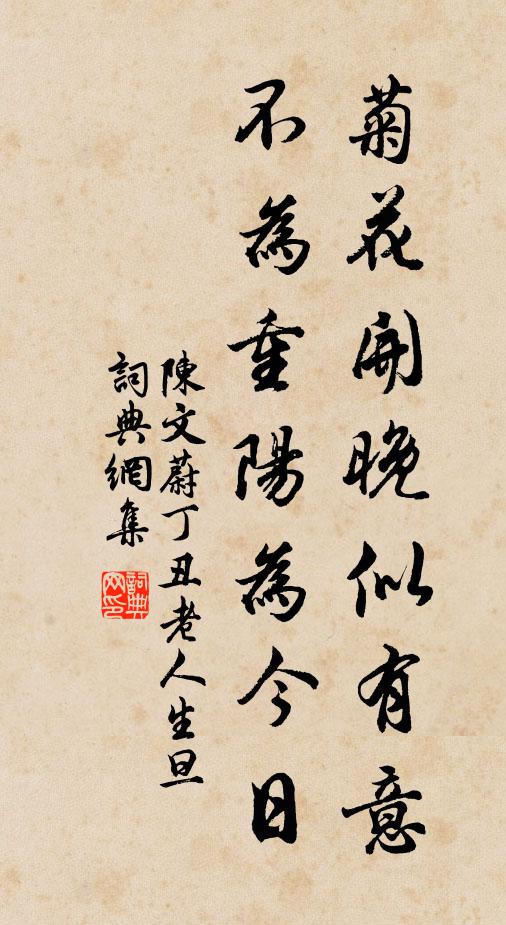 菊花開晚似有意
不為重陽為今日
陳文蔚丁丑老人生旦
詞典網集
詞典網印